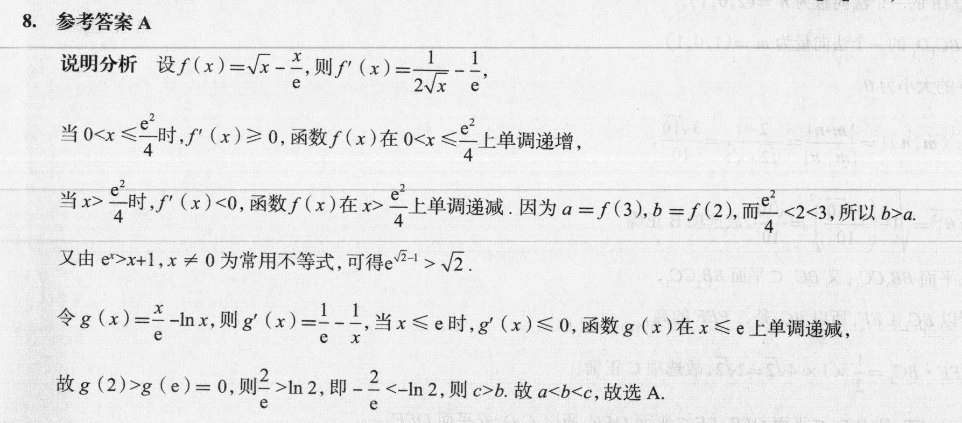 8. 参考答案 A
说明分析 设f(x)=√x-x/e,则f′(x)=1/(2√x)-1/e,
当0<x≤e²/4时,f′(x)≥0,函数f(x)在0<x≤e²/4上单调递增,
当x>e²/4时,f′(x)<0,函数f(x)在x>e²/4上单调递减.因为a=f(3),b=f(2),而e²/4<2<3,所以b>a.
又由eˣ>x+1,x≠0为常用不等式,可得e^(√2-1)>√2.
令g(x)=x/e-ln x,则g′(x)=1/e-1/x,当x≤e时,g′(x)≤0,函数g(x)在x≤e上单调递减,
故g(2)>g(e)=0,则2/e>ln 2,即-2/e<-ln 2,则c>b.故a<b<c,故选A.